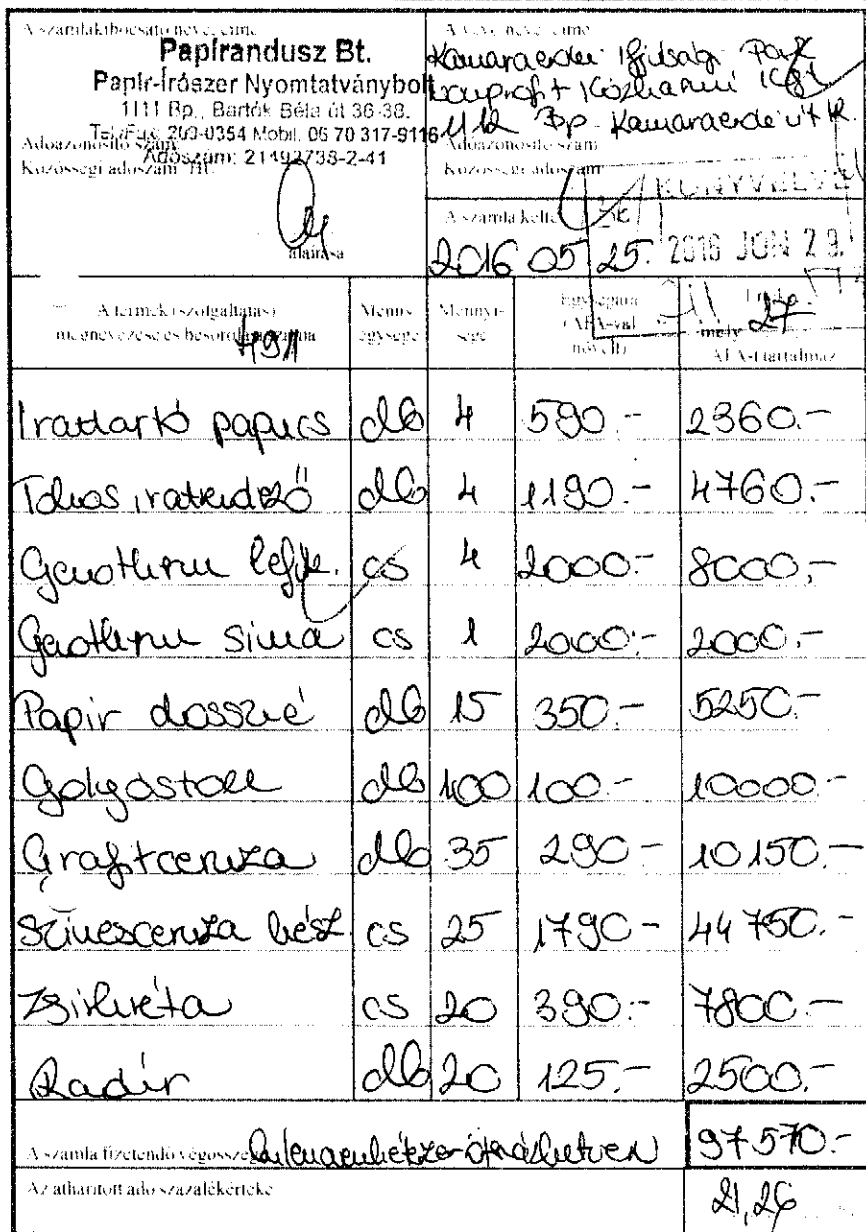 A számlakibocsátó neve, címe
Papírandusz Bt.
Papír-Írószer Nyomtatványbolt
1111 Bp., Bartók Béla út 36-38.
Tel./Fax: 209-0354 Mobil: 06 70 317-9116
Adóazonosító szám:
Adószám: 21492738-2-41
Közösségi adószám: HU
aláírása
A vevő neve, címe
Kamaraerdei Ifjúsági Park
Nonprofit Közhasznú Kft
1112 Bp. Kamaraerdei út
Adóazonosító szám
Közösségi adószám
KÖNYVELVE
A számla kelte
2016 05 25.
2016 JÚN 29.
A termék (szolgáltatás) megnevezése és besorolási száma
Menny. egysége
Mennyisége
Egységára (ÁFA-val növelt)
Értéke
27
mely
ÁFA-t tartalmaz
491
Irattartó papucs db 4 590.- 2360.-
Tolós iratrendező db 4 1190.- 4760.-
Genotherm lefűz. cs 4 2000.- 8000.-
Genotherm sima cs 1 2000.- 2000.-
Papír dosszié db 15 350.- 5250.-
Golyóstoll db 100 100.- 10000.-
Grafitceruza db 35 290.- 10150.-
Színesceruza kész. cs 25 1790.- 44750.-
Zsírkréta cs 20 390.- 7800.-
Radír db 20 125.- 2500.-
A számla fizetendő végösszege Kilencvenhétezer-ötszázhetven 97570.-
Az áthárított adó százalékértéke 21,26